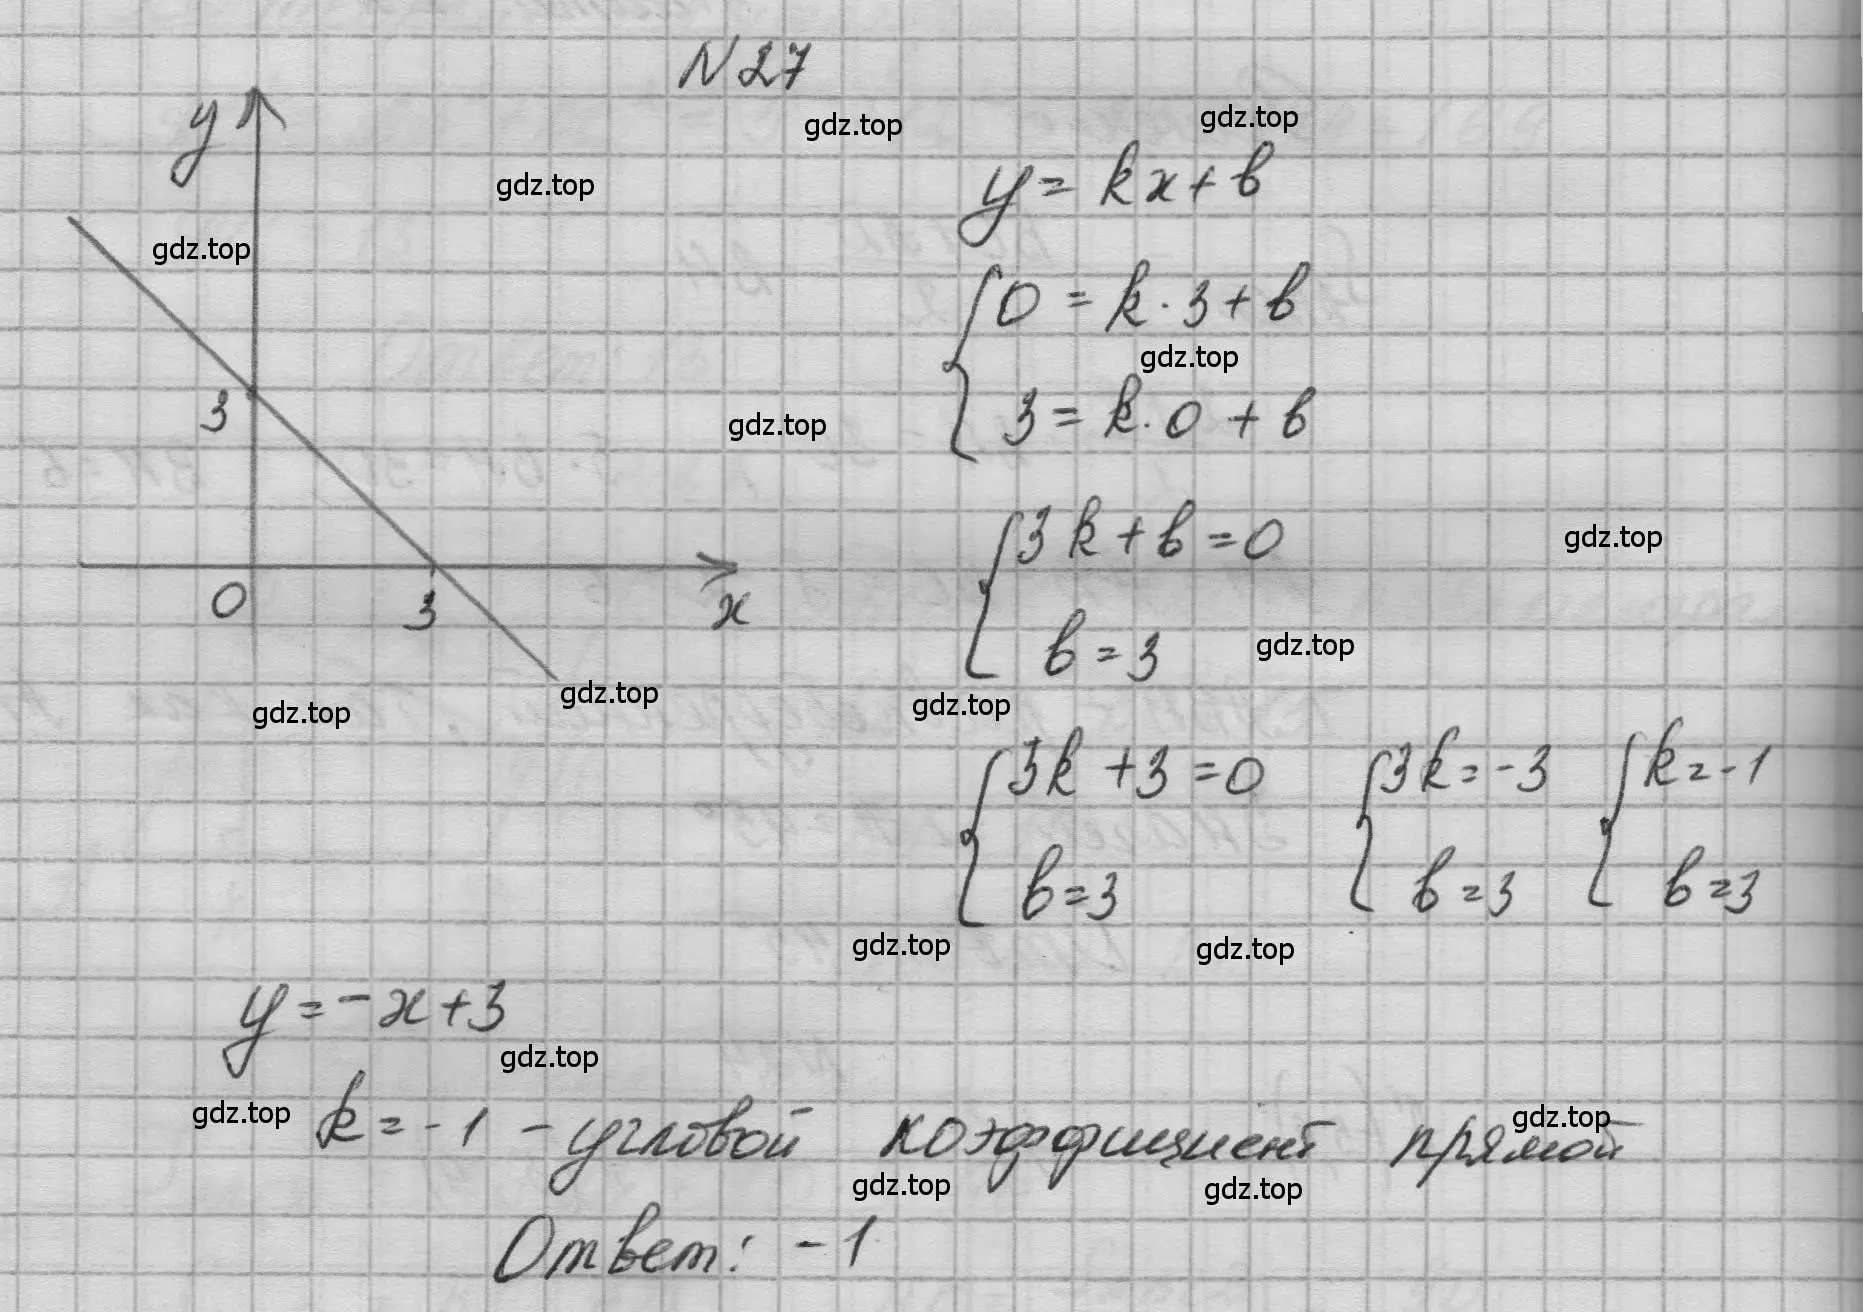 N 27
gdz.top
gdz.top
y
gdz.top
y = kx + b
gdz.top
0 = k · 3 + b
gdz.top
3
gdz.top
3 = k · 0 + b
3k + b = 0
gdz.top
0
3
x
b = 3
gdz.top
gdz.top
gdz.top
gdz.top
3k + 3 = 0
3k = -3
k = -1
b = 3
b = 3
b = 3
gdz.top
gdz.top
y = -x + 3
gdz.top
gdz.top
gdz.top
k = -1 - угловой коэффициент прямой
gdz.top
gdz.top
Ответ: -1